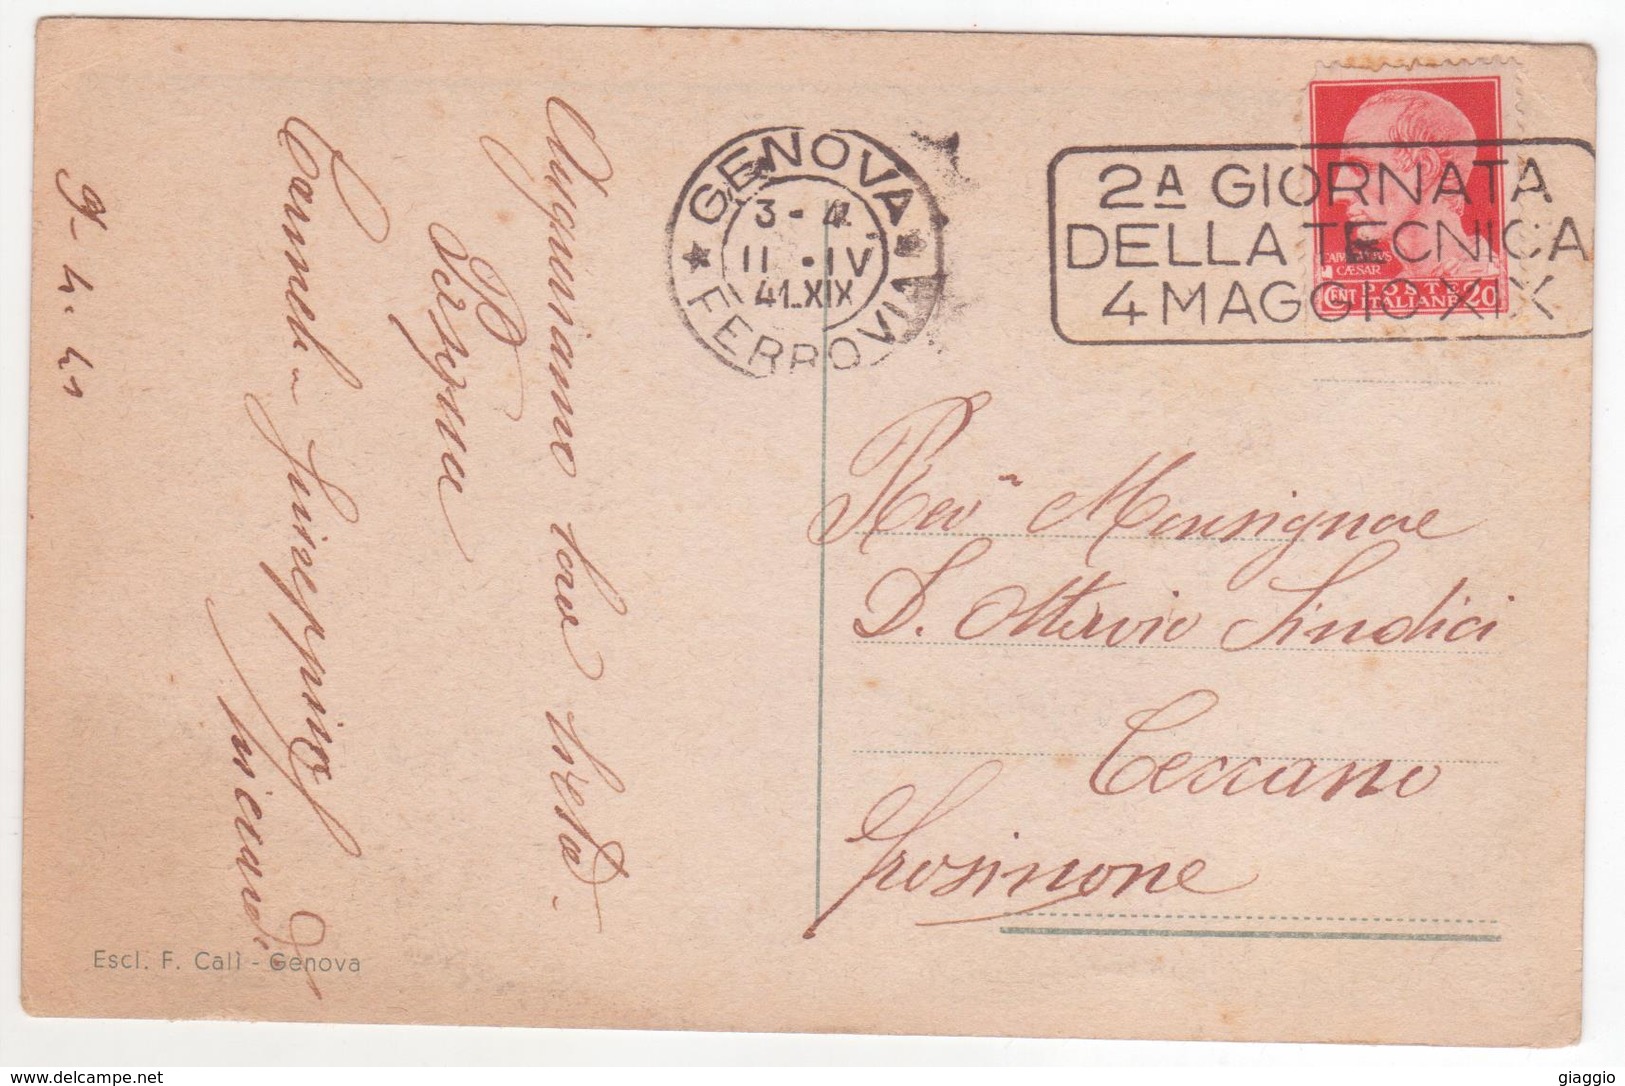 GENOVA
3-4
11.IV
41.XIX
FERROVIA
2A GIORNATA
DELLA TECNICA
4 MAGGIO XIX
CAESAR
CENT POSTE 20
ITALIANE
Auguriamo loro lieta
Pasqua
9-4-41
Rev Monsignore
D. Ottavio Sindici
Ceccano
Frosinone
Escl. F. Calì - Genova
www.delcampe.net
giaggio